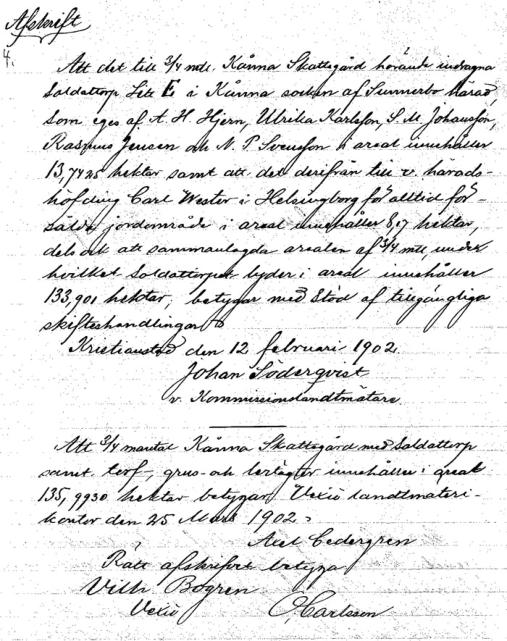 Afskrift
4.
Att det till 3/4 mtl. Kånna Skattegård hörande indragna
Soldattorp Litt E i Kånna socken af Sunnerbo härad,
som eges af A. H. Hjern, Ulrika Karlsson, S. M. Johansson,
Rasmus Jensen och N. P. Svensson i areal innehåller
13,7425 hektar samt att det derifrån till v. härads-
höfding Carl Wester i Helsingborg för alltid för-
sålda jordområde i areal innehåller 8,07 hektar,
dels ock att sammanlagda arealen af 3/4 mtl, under
hvilket soldattorpet lyder i areal innehåller
133,901 hektar, betygar med Stöd af tillgängliga
skifteshandlingar
Kristianstad den 12 februari 1902.
Johan Söderqvist
v. Kommissionslandtmätare.
Att 3/4 mantal Kånna Skattegård med Soldattorp
samt torf-, grus- och lertägter innehåller i areal
135,9930 hektar betygar. Vexiö landtmäteri-
kontor den 25 Mars 1902.
Axel Cedergren
Rätt afskrifvet betyga
Vilh. Bogren
Vexiö O. Carlsson